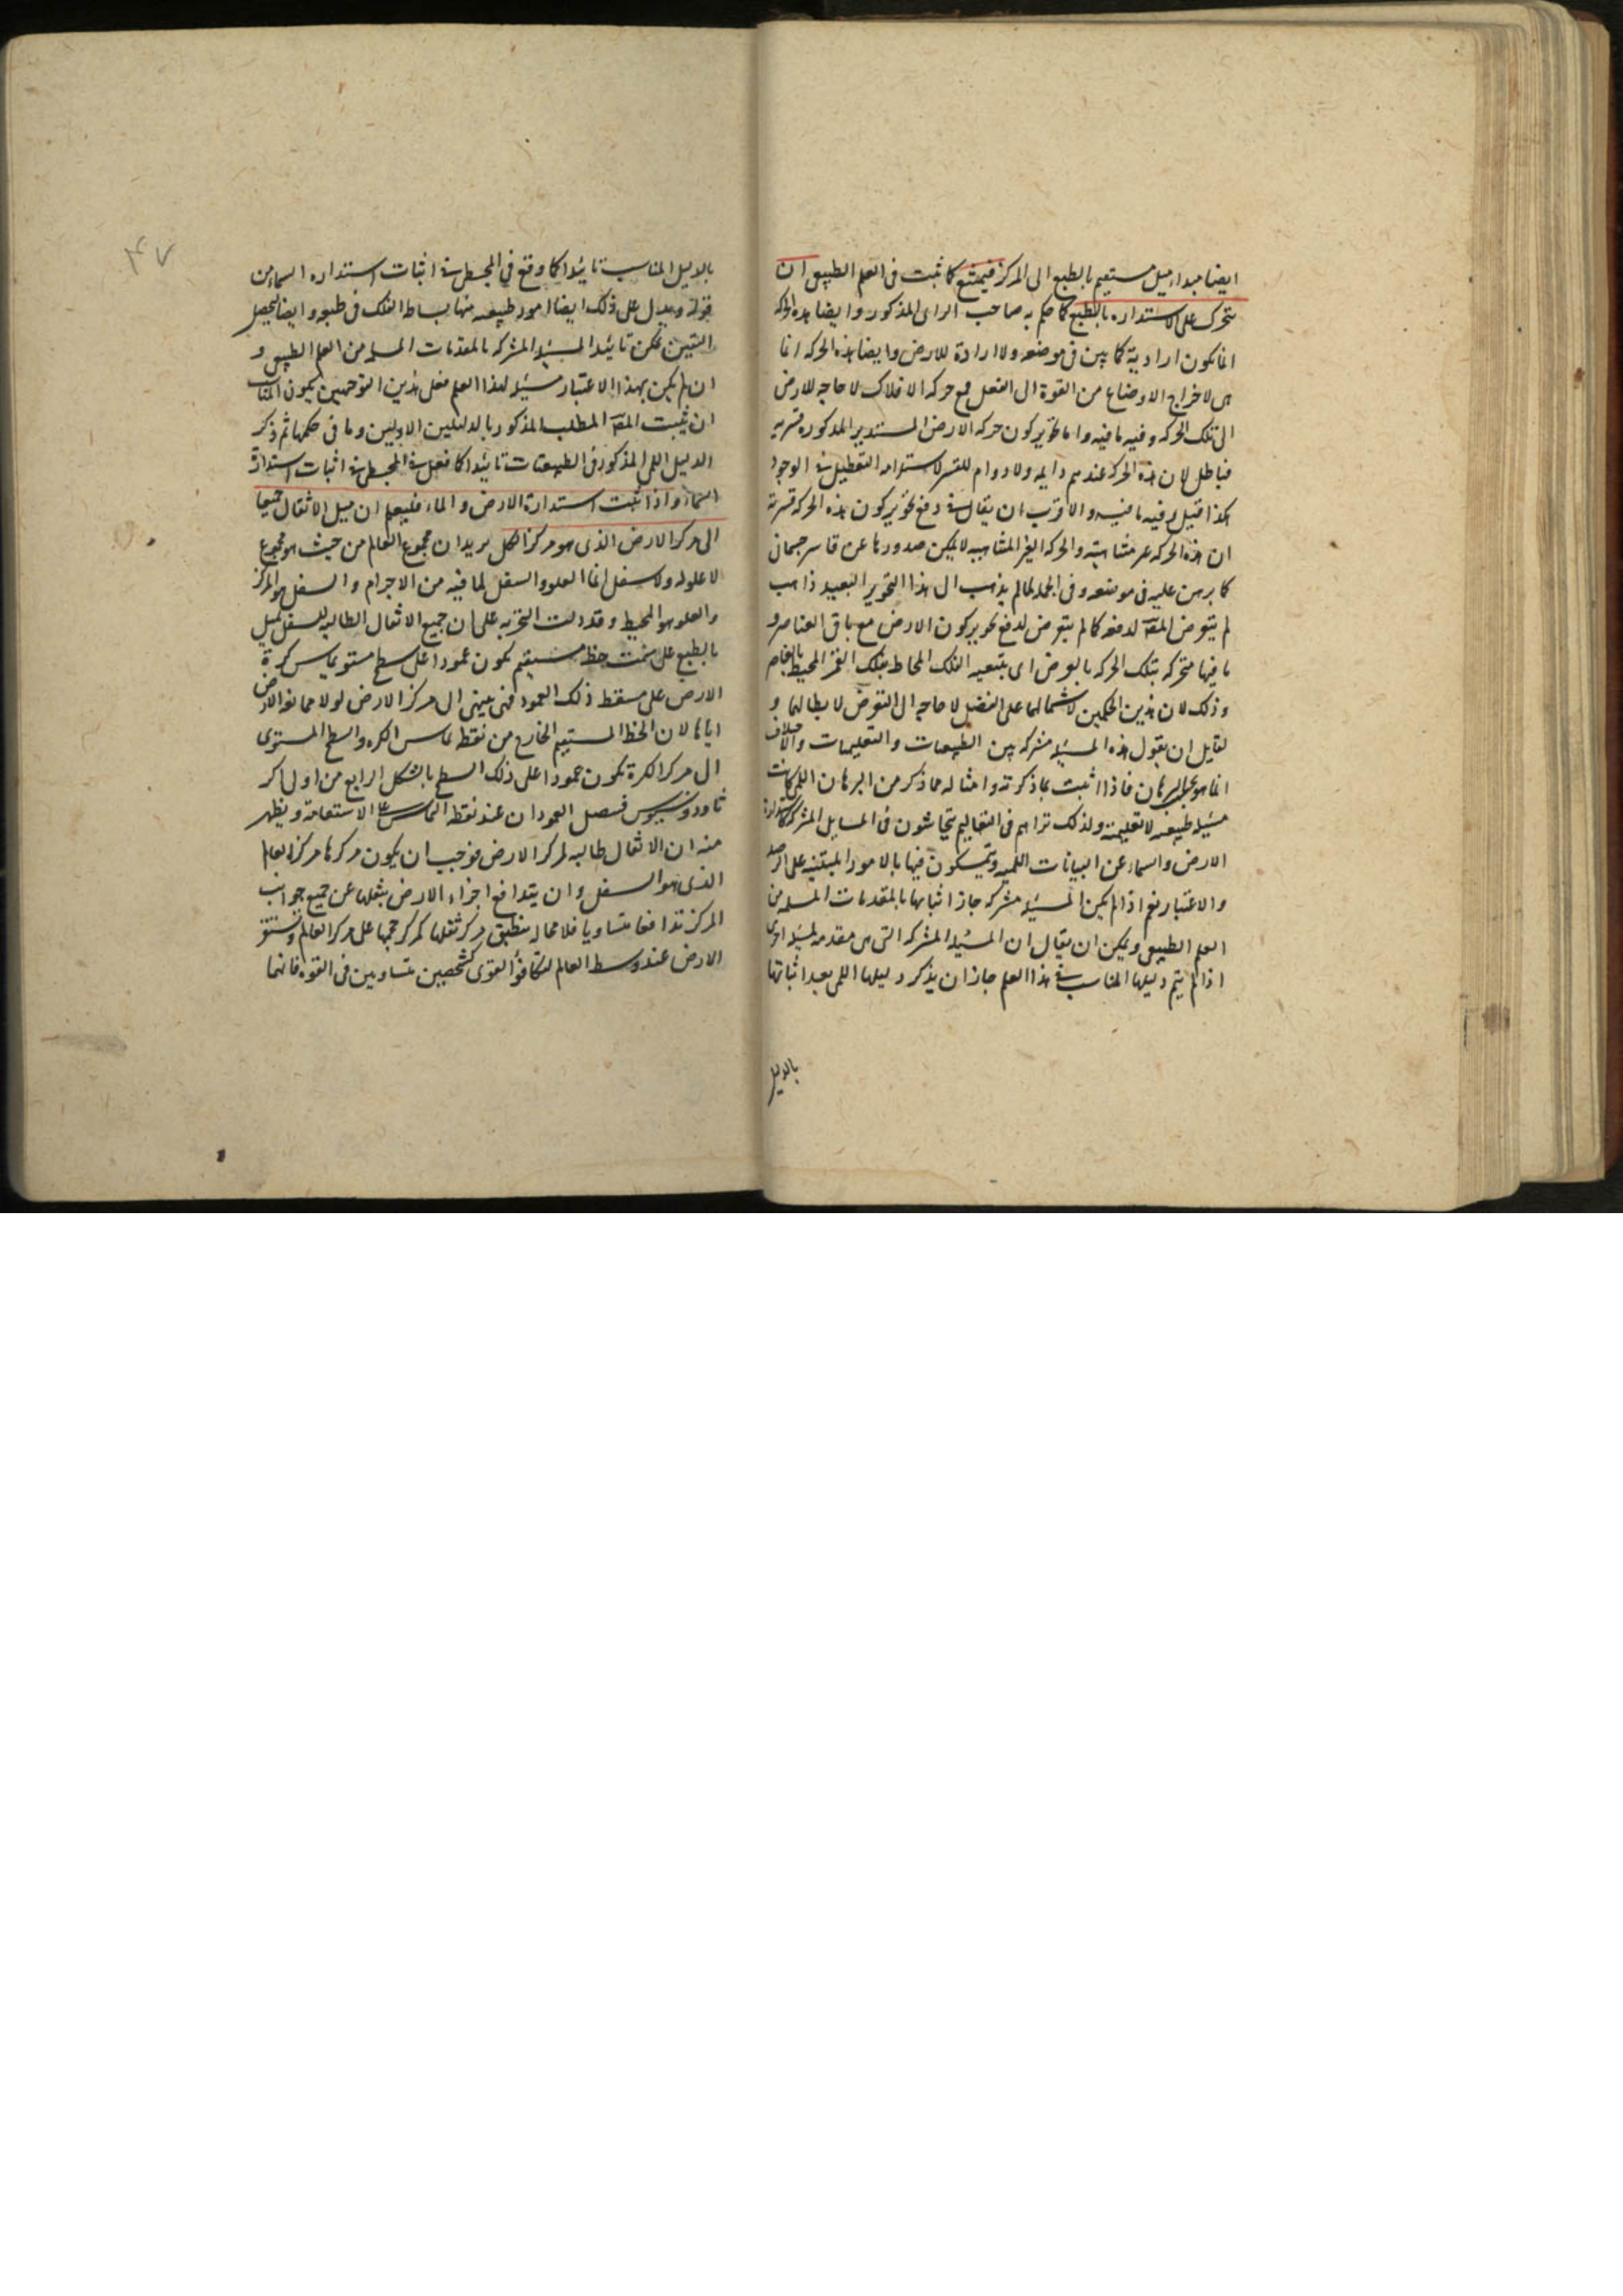 ايضا مبداء ميل مستقيم بالطبع الى المركز فيمتنع كما ثبت فى العلم الطبيعى ان
يتحرك على الاستداره بالطبع كما حكم به صاحب الراى المذكور وايضا هذه الحركه
انما يكون اراديه كما بين فى موضعه ولا ارادة للارض وايضا هذه الحركه انما
هى لاخراج الاوضاع من القوة الى الفعل فمع حركه الافلاك لا حاجه للارض
الى تلك الحركه وفيه ما فيه واما تجويز كون حركه الارض المستدير المذكوره قسريه
فباطل لان هذه الحركه عندهم دايمه ولا دوام للقسر لاستلزامه التعطيل فى الوجود
هكذا قيل وفيه ما فيه والاقرب ان يقال فى دفع تجويز كون هذه الحركه قسرية
ان هذه الحركه غير متشابهة والحركه الغير المتشابهه لا يمكن صدورها عن قاسر جسمانى
كما برهن عليه فى موضعه وفى الجمله لما لم يذهب الى هذا التجويز البعيد ذاهب
لم يتعرض المصـ لدفعه كما لم يتعرض لدفع تجويز كون الارض مع باقى العناصر و
ما فيها متحركه بتلك الحركه بالعرض اى بتبعيه الفلك المحاط بفلك القمر المحيط بالعناصر
وذلك لان هذين الحكمين لاشتمالهما على الفصل لا حاجه الى التعرض لابطالهما و
لقايل ان يقول هذه المسئله مشتركه بين الطبيعيات والتعليميات والاختلاف
انما هو بحسب البرهان فاذا اثبت بما ذكرته وامثاله مما ذكر من البرهان اللمى كانت
مسئله طبيعيه لا تعليمية ولذلك تراهم فى التعاليم يتحاشون فى المسايل المشتركه كاستدارة
الارض والسماء عن البيانات اللميه ويتمسكون فيها بالامور المبتنيه على الرصد
والاعتبار نعم اذا لم يكن المسئله مشتركه جاز اثباتها بالمقدمات المسلمه من
العلم الطبيعى ويمكن ان يقال ان المسئله المشتركه التى هى مقدمه لمسئله اخرى
اذا لم يتم دليلها المناسب فى هذا العلم جاز ان يذكر دليلها اللمى بعد اثباتها
بالدليل
٤٧
بالدليل المناسب تاييدا كما وقع فى المجسطى فى اثبات استداره السماء من
قوله ويدل على ذلك ايضا امور طبيعيه منها بساطه الفلك فى طبعه وايضا ليحصل
اليقين يمكن تاييد المسئله المشتركه بالمقدمات المسلمه من العلم الطبيعى و
ان لم يكن بهذا الاعتبار مسئله لهذا العلم فعلى هذين التوجهين يكون المناسب
ان يثبت المصـ المطلب المذكور بالدليلين الاوليين وما فى حكمهما ثم ذكر
الدليل اللمى المذكور فى الطبيعيات تاييدا كما فعل فى المجسطى فى اثبات استدارة
السماء واذا ثبت استدارة الارض والماء فليعلم ان ميل الاثقال جميعا
الى مركز الارض الذى هو مركز الكل يريد ان مجموع العالم من حيث هو مجموع
لا علو له ولا سفل انما العلو والسفل لما فيه من الاجرام والسفل هو المركز
والعلو هو المحيط وقد دلت التجربه على ان جميع الاثقال الطالبه للسفل تميل
بالطبع على سمت خط مستقيم يكون عمودا على سطح مستو يماس كرة
الارض على مسقط ذلك العمود فهى ينتهى الى مركز الارض لولا ممانعه الارض
اياها لان الخط المستقيم الخارج من نقطه تماس الكره والسطح المستوى
الى مركز الكرة يكون عمودا على ذلك السطح بالشكل الرابع من اولى اكر
ثاوذوسيوس فيتصل العمودان عند نقطه التماس على الاستقامة ويظهر
منه ان الاثقال طالبه لمركز الارض فوجب ان يكون مركزها مركز العالم
الذى هو السفل وان يتدافع اجزاء الارض بثقلها عن جميع جوانب
المركز تدافعا متساويا فلا محاله ينطبق مركز ثقلها كمركز حجمها على مركز العالم وتستقر
الارض عند وسط العالم لتكافؤ القوى كشخصين متساويين فى القوه فانهما